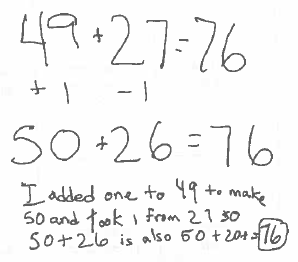 49 + 27 = 76
+ 1 - 1
50 + 26 = 76
I added one to 49 to make
50 and took 1 from 27 so
50 + 26 is also 50 + 20 + = 76